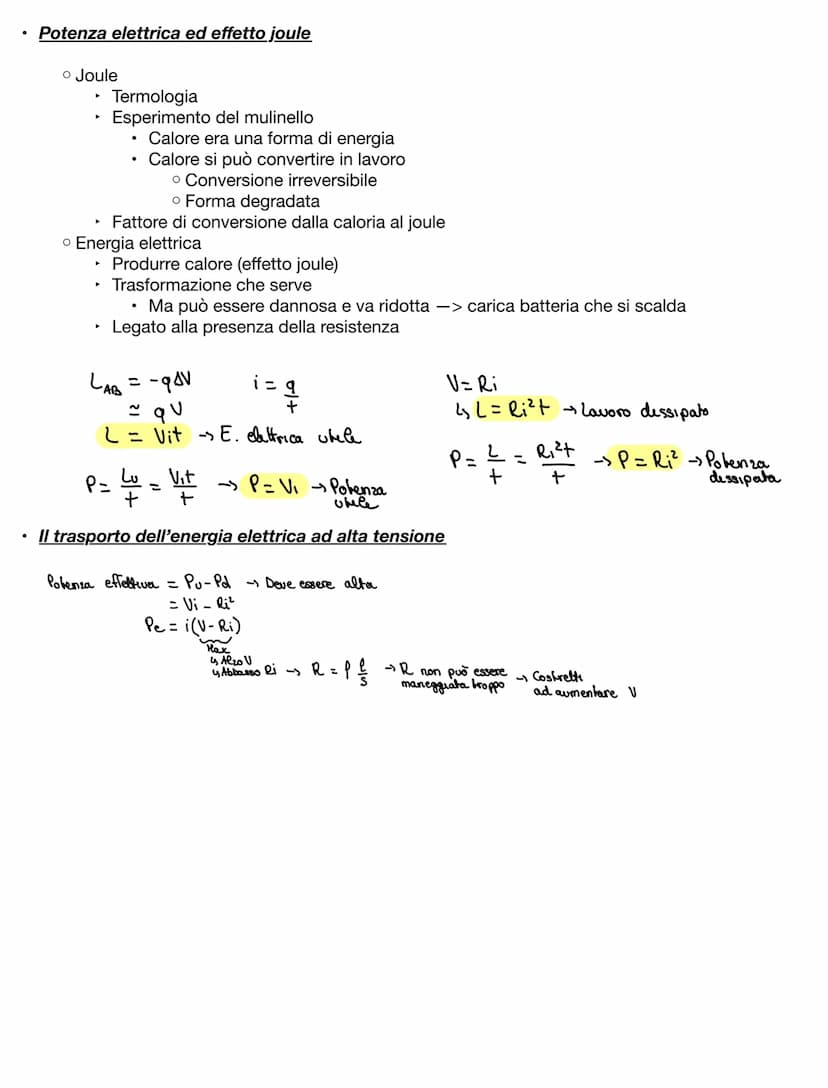 • Potenza elettrica ed effetto joule
○ Joule
‣ Termologia
‣ Esperimento del mulinello
• Calore era una forma di energia
• Calore si può convertire in lavoro
○ Conversione irreversibile
○ Forma degradata
‣ Fattore di conversione dalla caloria al joule
○ Energia elettrica
‣ Produrre calore (effetto joule)
‣ Trasformazione che serve
• Ma può essere dannosa e va ridotta —> carica batteria che si scalda
‣ Legato alla presenza della resistenza
L_AB = -qΔV
≃ qV
L = Vit → E. elettrica utile
i = q/t
P = Lu/t = Vit/t → P = Vi → Potenza utile
V = Ri
↳ L = Ri²t → Lavoro dissipato
P = L/t = Ri²t/t → P = Ri² → Potenza dissipata
• Il trasporto dell'energia elettrica ad alta tensione
Potenza effettiva = Pu - Pd → Deve essere alta
= Vi - Ri²
Pe = i(V - Ri)
Max
↳ Alzo V
↳ Abbasso Ri → R = ρ l/s → R non può essere maneggiata troppo → Costretti ad aumentare V